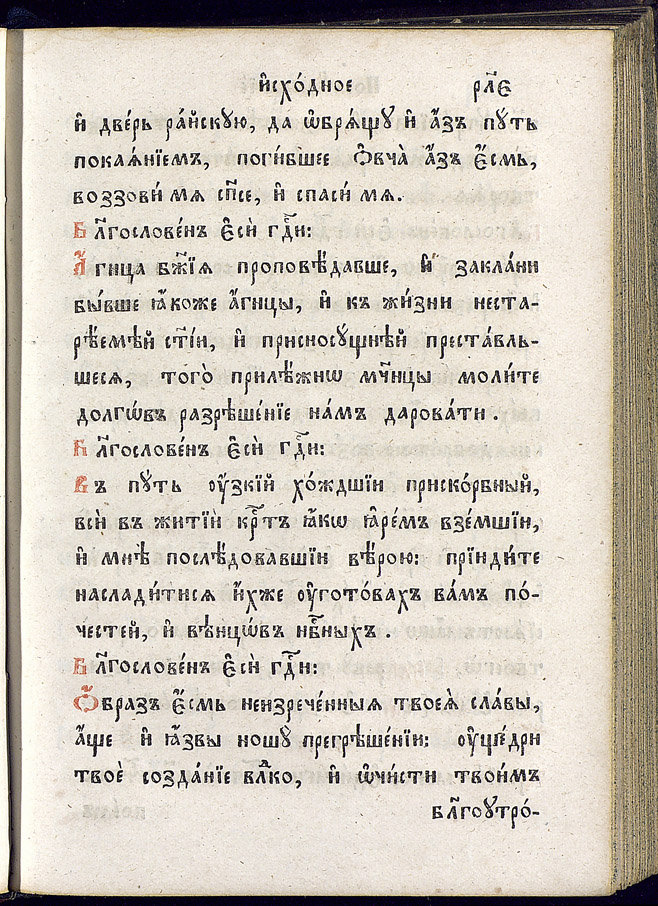 и҆схо́дное рл҃є
и҆ две́рь ра́йскꙋю, да ѡ҆брѧ́щꙋ и҆ а҆́зъ пꙋть
покаѧ́нїемъ, поги́бшее ѻ҆вча̀ а҆́зъ є҆́смь,
воззови́ мѧ сп҃се, и҆ спаси́ мѧ.
Бл҃гослове́нъ є҆сѝ гдⷭ҇и:
А҆́гнца бж҃їѧ проповѣ́давше, и҆ закла́ни
бы́вше ꙗ҆́коже а҆́гнцы, и҆ къ жи́зни неста-
рѣ́емѣй ст҃і́и, и҆ присносꙋ́щнѣй преста́вль-
шесѧ, того̀ прилѣ́жнѡ мч҃нцы моли́те
долгѡ́въ разрѣше́нїе на́мъ дарова́ти.
Бл҃гослове́нъ є҆сѝ гдⷭ҇и:
Въ пꙋть ᲂу҆́зкїй хо́ждшїи приско́рбный,
всѝ въ житїѝ крⷭ҇тъ ꙗ҆́кѡ ꙗ҆ре́мъ взе́мшїи,
и҆ мнѣ̀ послѣ́довавшїи вѣ́рою: прїиди́те
наслади́тисѧ и҆́хже ᲂу҆гото́вахъ ва́мъ по́-
честей, и҆ вѣнцѡ́въ нбⷭ҇ныхъ.
Бл҃гослове́нъ є҆сѝ гдⷭ҇и:
Ѻ҆́бразъ є҆́смь неизрече́нныѧ твоеѧ̀ сла́вы,
а҆́ще и҆ ꙗ҆́звы ношꙋ̀ прегрѣше́нїи: ᲂу҆ще́дри
твоѐ созда́нїе влⷣко, и҆ ѡ҆чи́сти твои́мъ
бл҃гоꙋтро́-